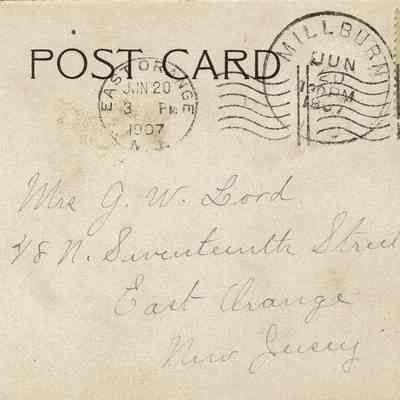 POST CARD
EAST ORANGE
JUN 20
3 PM
1907
N.J.
MILLBURN
JUN
20
1907
Mrs J. W. Lord
48 N. Seventeenth Street
East Orange
New Jersey